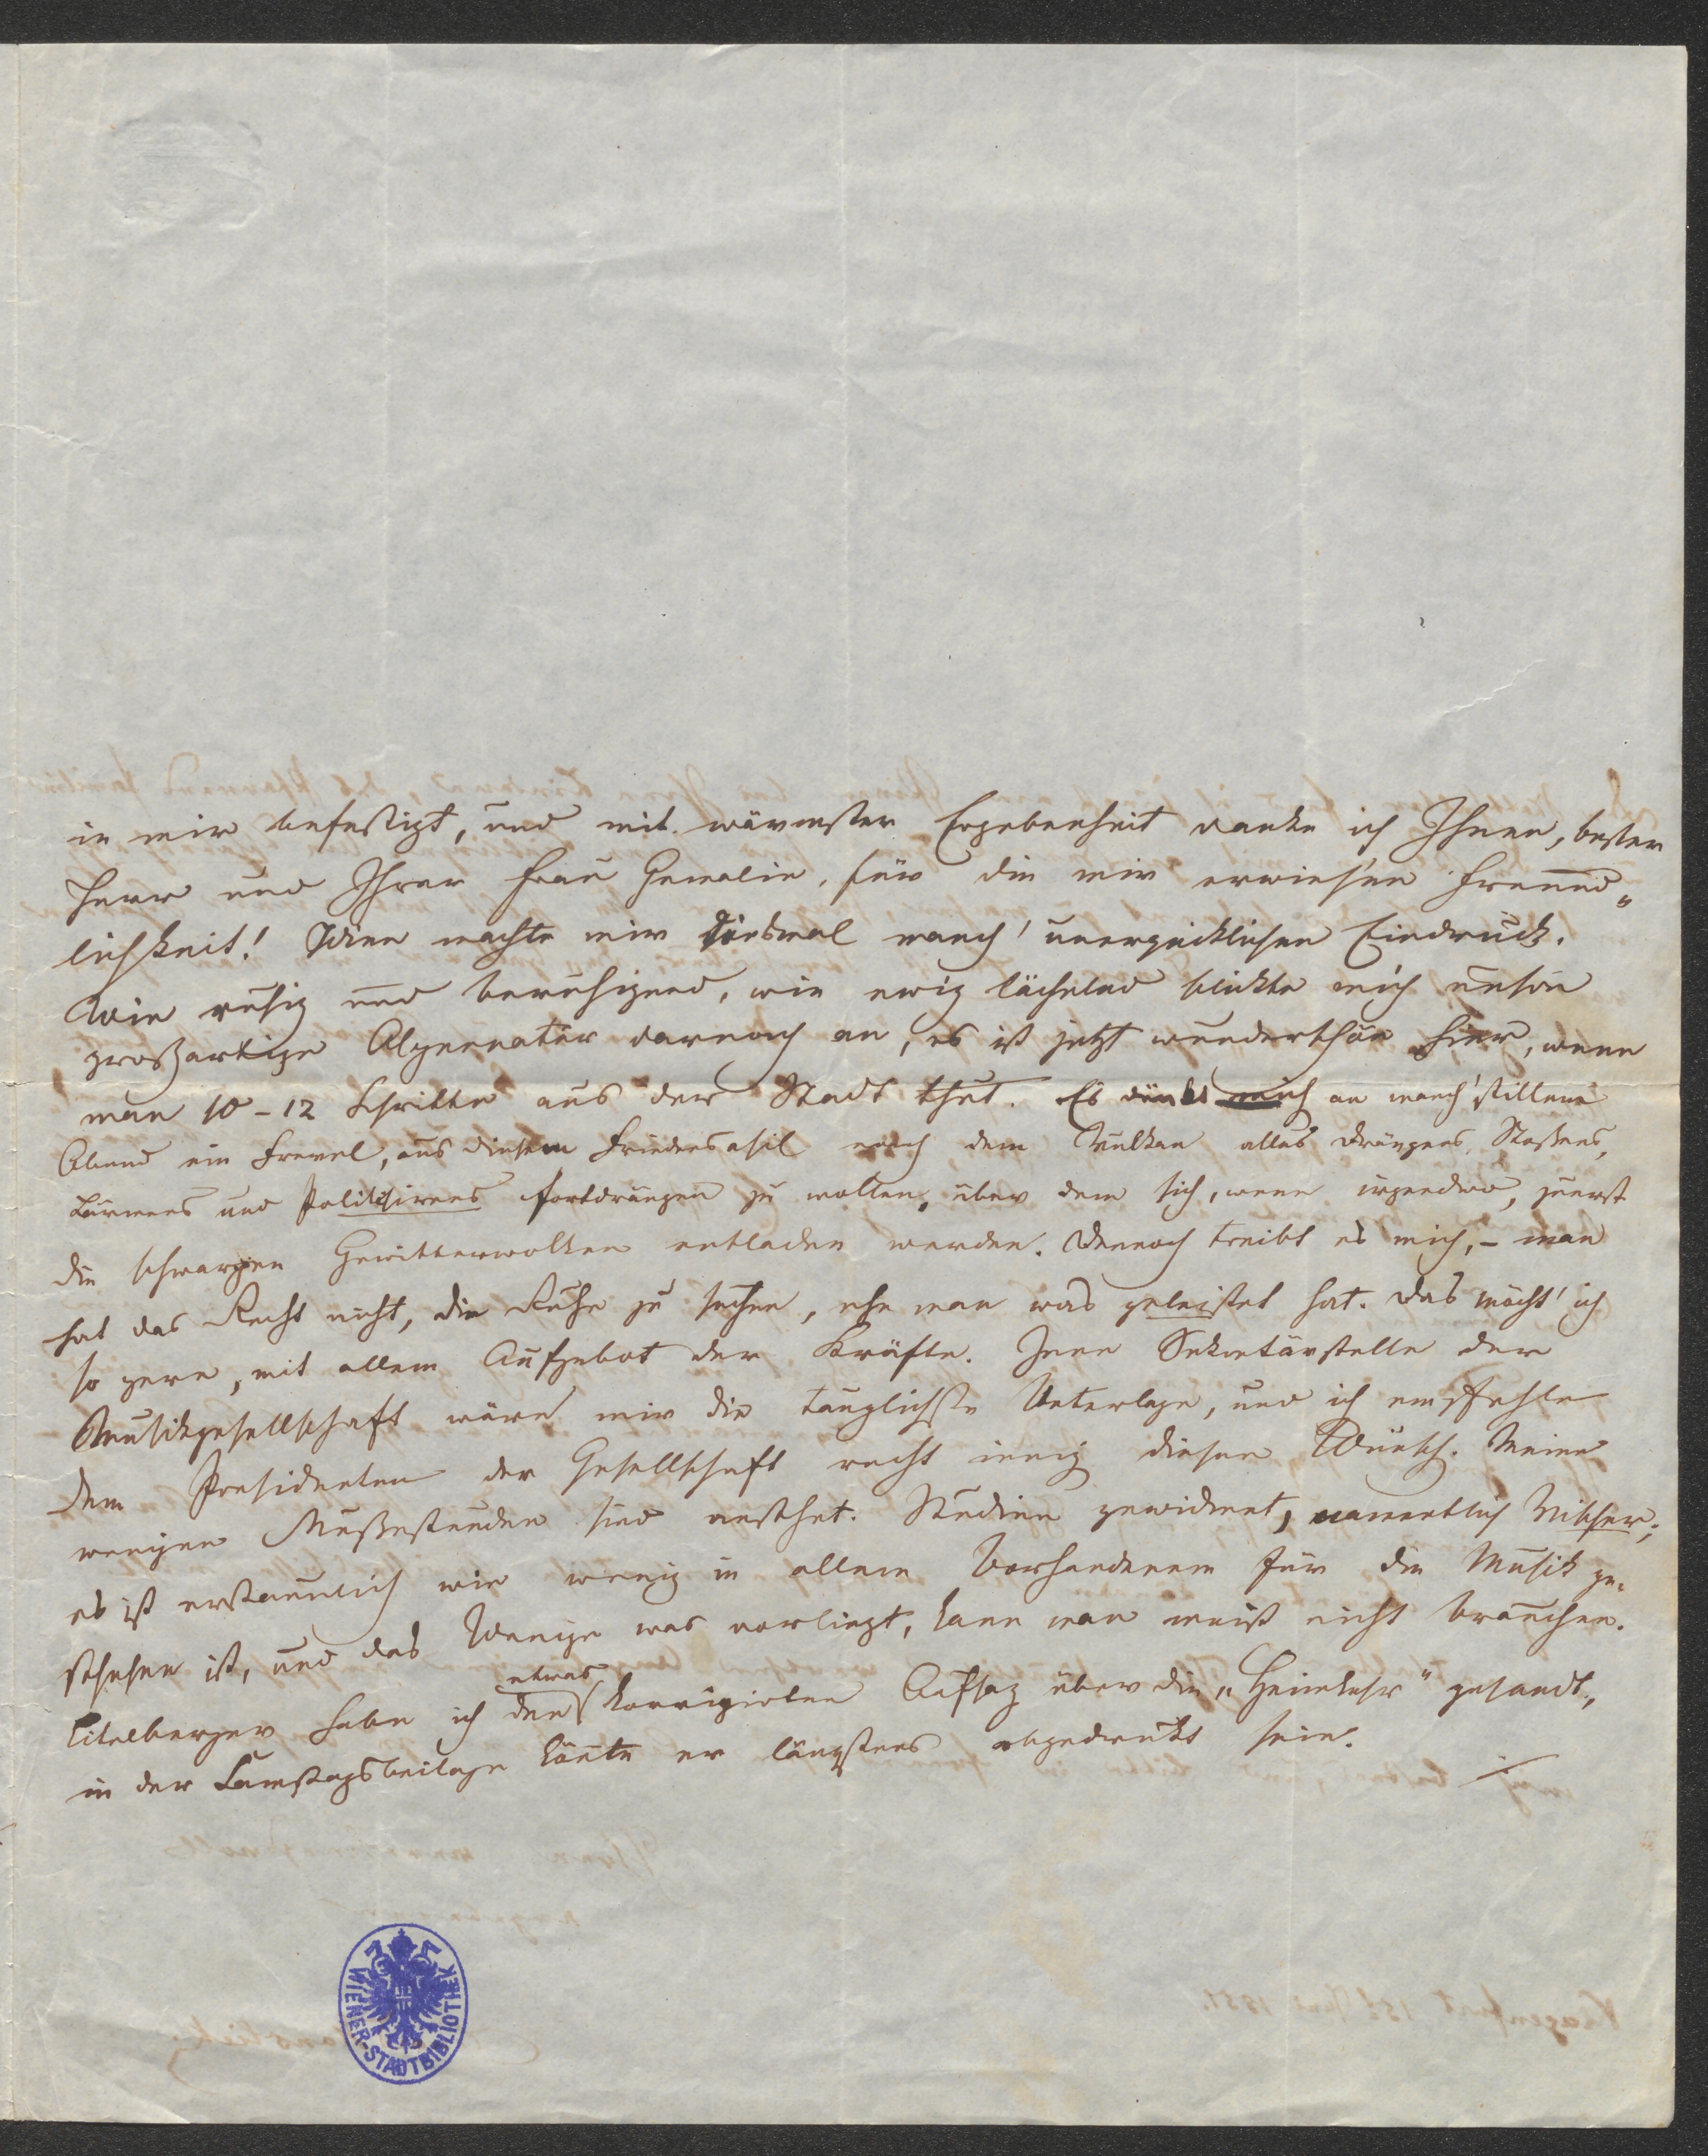 in mir befestigt, und mit wärmster Ergebenheit danke ich Ihnen, bester
Herr und Ihrer Frau Gemalin, für die mir erwiesene Freund„
lichkeit! Wien machte mir diesmal manch' unerquicklichen Eindruck.
Wie ruhig und beruhigend, wie ewig lächelnd blickte mich unsre
großartige Alpennatur darnach an, es ist jetzt wunderschön hier, wenn
man 10-12 Schritte aus der Stadt thut. Es dünkt mich an manch' stillem
Abend ein Frevel, aus diesem Friedensasil nach dem Vulkan alles Drängens, Stoßens,
Lärmens und Politisirens fortdrängen zu wollen, über dem sich, wenn irgendwo, zuerst
die schwarzen Gewitterwolken entladen werden. Dennoch treibt es mich, – man
hat das Recht nicht, die Ruhe zu suchen, ehe man was geleistet hat. Das möcht' ich
so gern, mit allem Aufgebot der Kräfte. Jene Sekretärstelle der
Musikgesellschaft wäre mir die tauglichste Unterlage, und ich empfehle
dem Presidenten der Gesellschaft recht innig diesen Wunsch. Meine
wenigen Mußestunden sind aesthet. Studien gewidmet, namentlich Vischer;
es ist erstaunlich wie wenig in allem Vorhandenen für die Musik ge-
schehen ist, und das Wenige was vorliegt, kann man meist nicht brauchen.
Eitelberger habe ich den etwas korrigirten Aufsaz über die „Heimkehr" gesandt,
in der Samstagsbeilage könnte er längstens abgedruckt sein.
WIENER-STADTBIBLIOTHEK